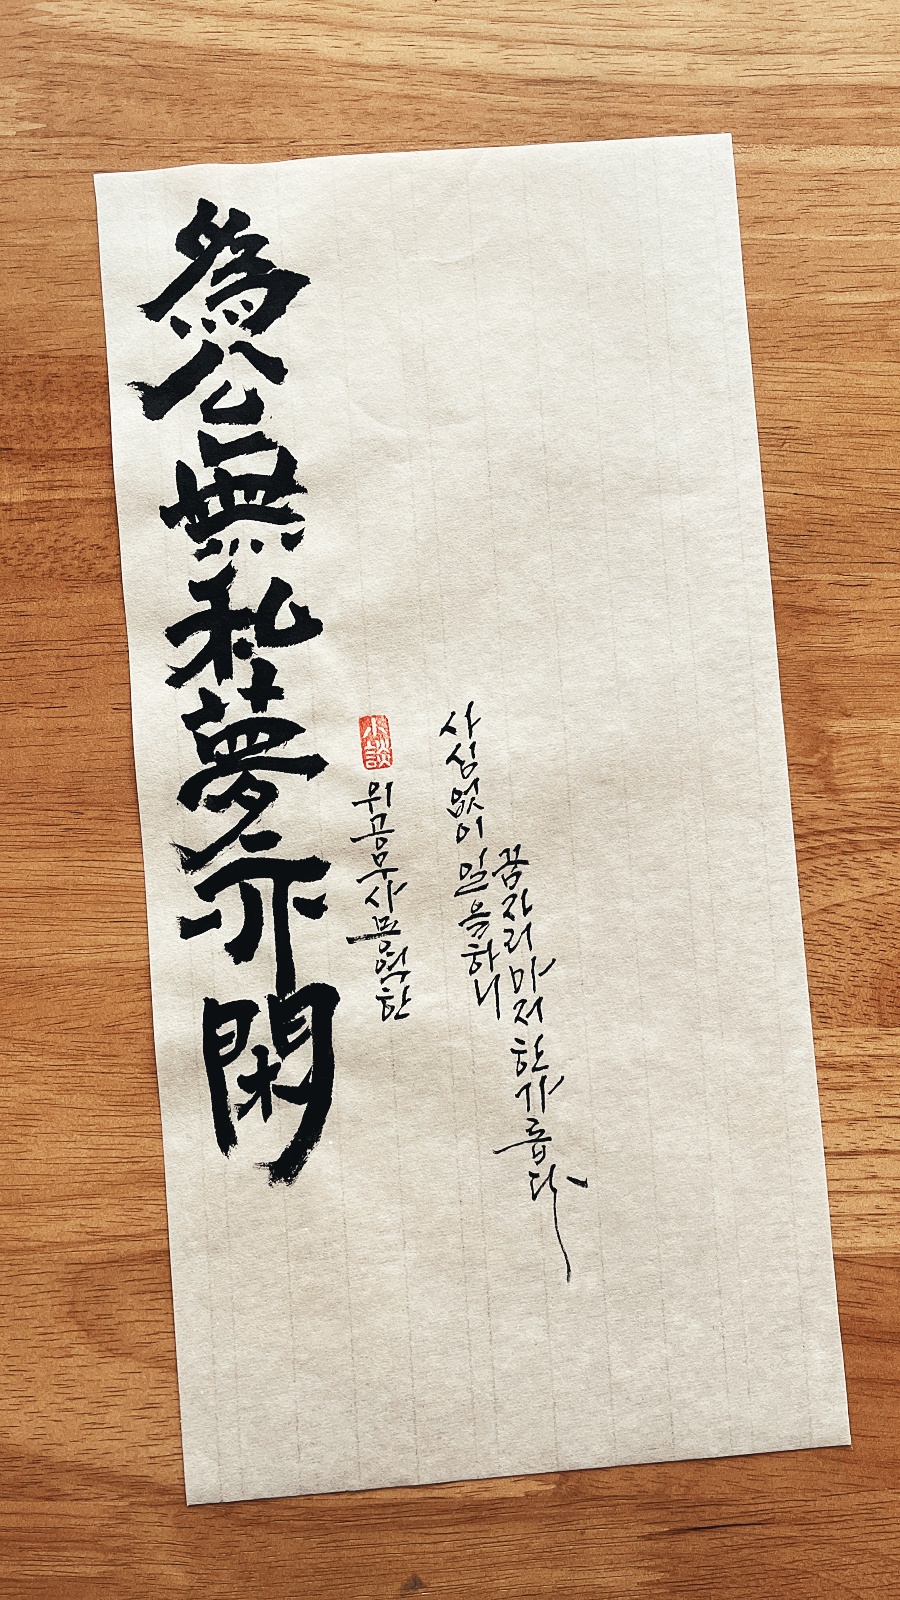 爲公無私夢亦閑
小談
위공무사몽역한
사심없이 일을하니
꿈자리마저 한가롭다